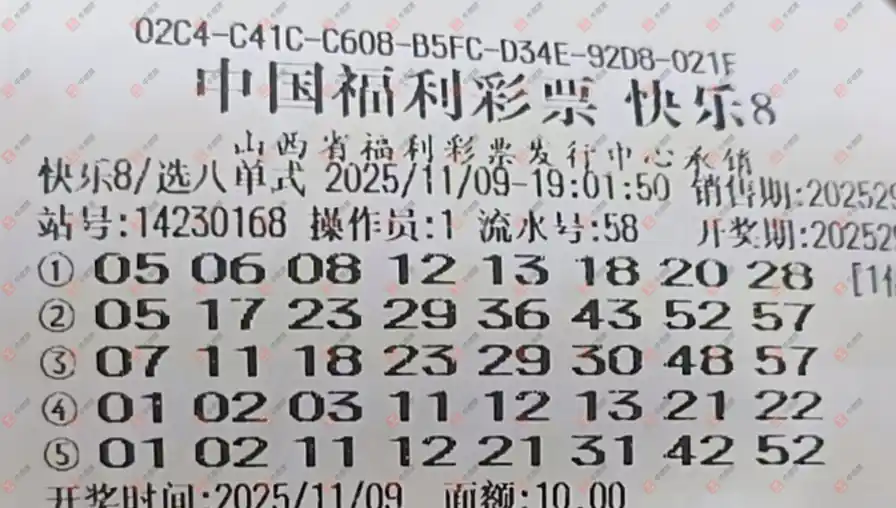 02C4-C41C-C608-B5FC-D34E-92D8-021F
中国福利彩票 快乐8
山西省福利彩票发行中心承销
快乐8/选八单式 2025/11/09-19:01:50 销售期:202529
站号:14230168 操作员:1 流水号:58 开奖期:202529
① 05 06 08 12 13 18 20 28 [1倍
② 05 17 23 29 36 43 52 57
③ 07 11 18 23 29 30 48 57
④ 01 02 03 11 12 13 21 22
⑤ 01 02 11 12 21 31 42 52
开奖时间:2025/11/09 面额:10.00